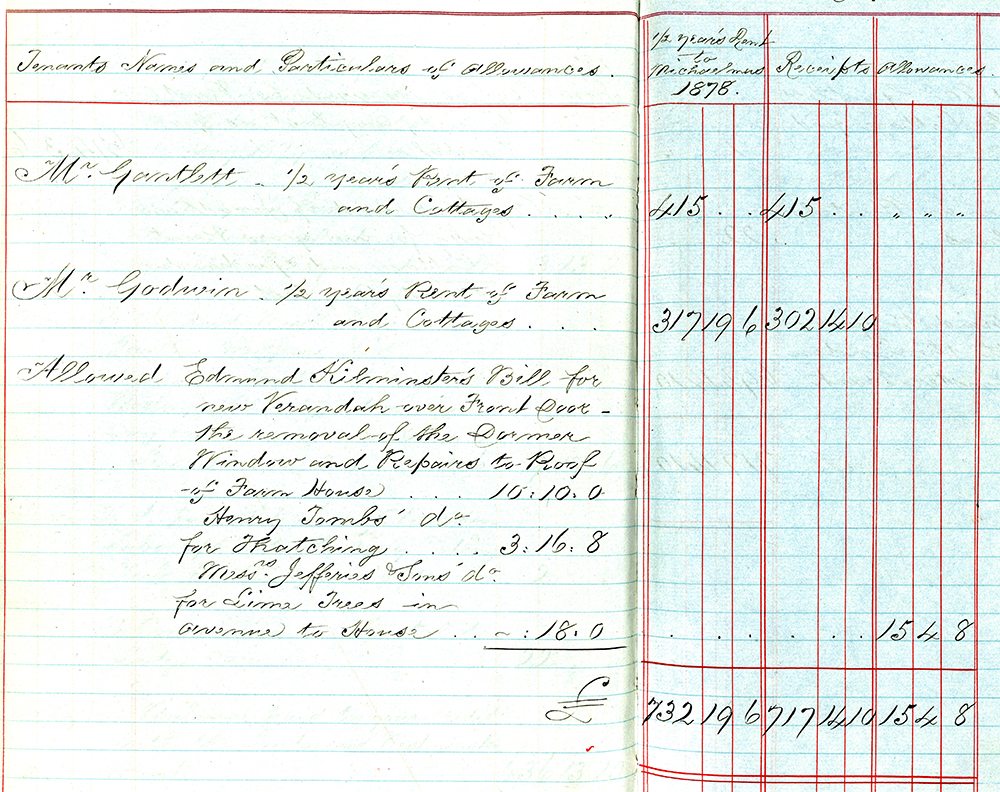 Tenants Names and Particulars of Allowances.
1/2 year's Rent
to
Michaelmas
1878.
Receipts
Allowances.
Mr. Gantlett . 1/2 year's Rent of Farm
and Cottages . . . . "
415 . . 415 . . " " "
Mr. Godwin . 1/2 year's Rent of Farm
and Cottages . . . .
317 19 6 302 14 10
Allowed Edmund Kilminster's Bill for
new Verandah over Front Door –
the removal of the Dormer
Window and Repairs to Roof
of Farm House . . . 10:10:0
Henry Tombs' do.
for Thatching . . . . 3:16:8
Messrs. Jefferies & Sons' do.
for Lime Trees in
avenue to House . . ~:18:0 . . . . . . 15 4 8
£ 732 19 6 717 14 10 15 4 8